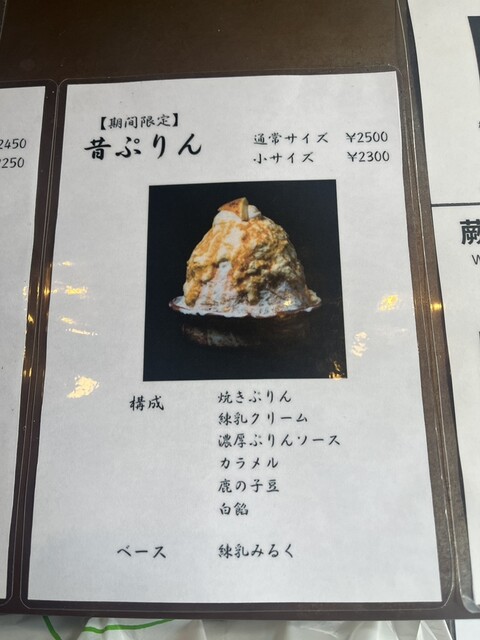 2450
2250
【期間限定】
昔ぷりん
通常サイズ ¥2500
小サイズ ¥2300
構成 焼きぷりん
練乳クリーム
濃厚ぷりんソース
カラメル
鹿の子豆
白餡
ベース 練乳みるく
蕨
W